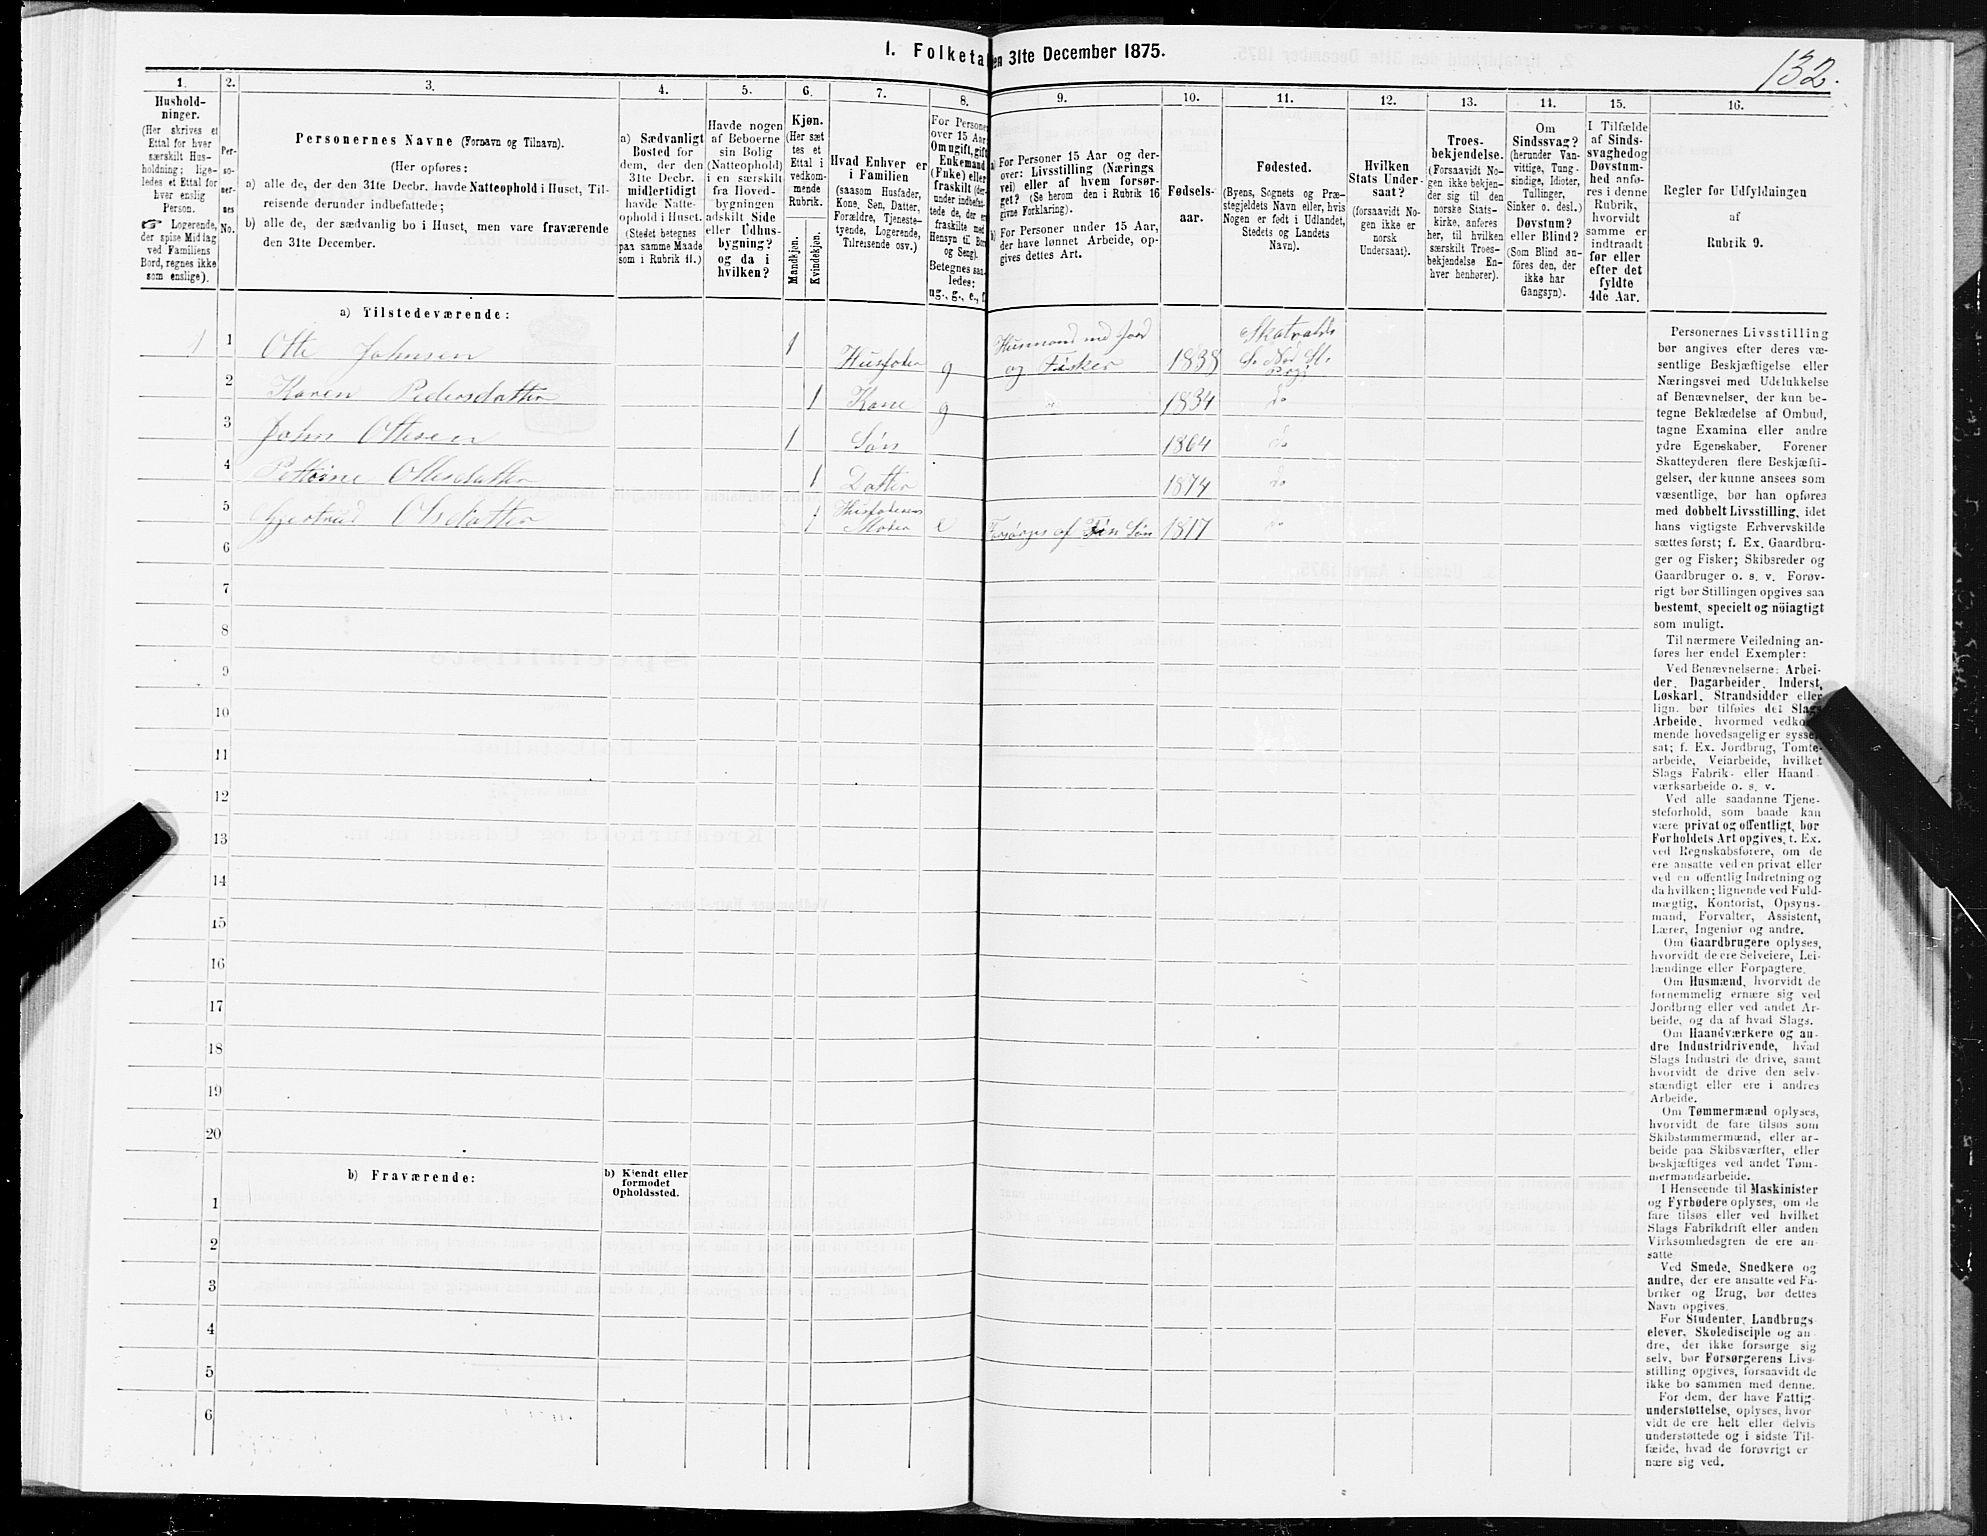 132.
1. Folketal den 31te December 1875.
1. 2. 3. 4. 5. 6. 7. 8. 9. 10. 11. 12. 13. 14. 15. 16.
Hushold-
ninger.
(Her skrives et
Ettal for hver
særskilt Hus-
holdning; lige-
ledes et Ettal for
hver enslig
Person.
☞ Logerende,
der spise Middag
ved Familiens
Bord, regnes ikke
som enslige).
Per-
so-
ner-
nes
No.
Personernes Navne (Fornavn og Tilnavn).
(Her opføres:
a) alle de, der den 31te Decbr. havde Natteophold i Huset, Til-
reisende derunder indbefattede;
b) alle de, der sædvanlig bo i Huset, men vare fraværende
den 31te December.
a) Sædvanligt
Bosted for
dem, der den
31te Decbr.
midlertidigt
havde Natte-
ophold i Huset.
(Stedet betegnes
paa samme Maade
som i Rubrik 11.)
Havde nogen
af Beboerne
sin Bolig
(Natteophold)
i en særskilt
fra Hoved-
bygningen
adskilt Side
eller Udhus-
bygning?
og da i
hvilken?
Kjøn.
(Her sæt
tes et
Ettal i
vedkom-
mende
Rubrik.
Mandkjøn.
Kvindekjøn.
Hvad Enhver er
i Familien
(saasom Husfader,
Kone, Søn, Datter,
Forældre, Tjeneste-
tyende, Logerende,
Tilreisende osv.)
For Personer
over 15 Aar:
Om ugift, gift
Enkemand
(Enke) eller
fraskilt (der-
under indbefat-
tede de, der er
fraskilte med
Hensyn til Bord
og Seng).
Betegnes saa-
ledes:
ug., g., e., f.
a) For Personer 15 Aar og der-
over: Livsstilling (Nærings
vei) eller af hvem forsør-
get? (Se herom den i Rubrik 16
givne Forklaring).
b) For Personer under 15 Aar,
der have lønnet Arbeide, op-
gives dettes Art.
Fødsels-
aar.
Fødested.
(Byens, Sognets og Præ-
stegjeldets Navn eller, hvis
Nogen er født i Udlandet,
Stedets og Landets
Navn).
Hvilken
Stats Under-
saat?
(forsaavidt No-
gen ikke er
norsk
Undersaat).
Troes-
bekjendelse.
(Forsaavidt No-
gen ikke bekjen-
der sig til den
norske Stats-
kirke, anføres
her, til hvilken
særskilt Troes-
bekjendelse En-
hver henhører).
Om
Sindssvag?
(herunder Van-
vittige, Tung-
sindige, Idioter,
Tullinger,
Sinker o. desl.)
Døvstum?
eller Blind?
(Som Blind an-
føres den, der
ikke har
Gangsyn).
I Tilfælde
af Sinds-
svaghed og
Døvstum-
hed anfø-
res i denne
Rubrik,
hvorvidt
samme er
indtraadt
før eller
efter det
fyldte
4de Aar.
Regler for Udfyldningen
af
Rubrik 9.
a) Tilstedeværende:
1 1 Otte Johnsen 1 Husfader g Husmand med Jord og Fisker 1838 Skatvals
2 Karen Pedersdatter 1 Kone g " 1834 do
3 John Ottesen 1 Søn 1864 do
4 Ottesdatter 1 Datter 1874 do
5 Gjertrud Olsdatter 1 Husfaderens Moder e Forsørges af Sin Søn 1817 do
6
7
8
9
10
11
12
13
14
15
16
17
18
19
20
b) Fraværende:
b) Kjendt eller
formodet
Opholdssted.
1
2
3
4
5
6
Personernes Livsstilling
bør angives efter deres væ-
sentlige Beskjæftigelse eller
Næringsvei med Udelukkelse
af Benævnelser, der kun be-
tegne Beklædelse af Ombud,
tagne Examina eller andre
ydre Egenskaber. Forener
Skatteyderen flere Beskjæfti-
gelser, der kunne ansees som
væsentlige, bør han opføres
med dobbelt Livsstilling, idet
hans vigtigste Erhvervskilde
sættes først; f. Ex. Gaardbru-
ger og Fisker; Skibsreder og
Gaardbruger o. s. v. Forøv-
rigt bør Stillingen opgives saa
bestemt, specielt og nöiagtigt
som muligt.
Til nærmere Veiledning an-
føres her endel Exempler:
Ved Benævnelserne: Arbei-
der, Dagarbeider, Inderst,
Løskarl, Strandsidder eller
lign. bør tilføies det Slags
Arbeide, hvormed vedkom-
mende hovedsagelig er syssel-
sat; f. Ex. Jordbrug, Tomte-
arbeide, Veiarbeide, hvilket
Slags Fabrik- eller Haand-
værksarbeide o. s. v.
Ved alle saadanne Tjene-
steforhold, som baade kan
være privat og offentligt, bør
Forholdets Art opgives, t. Ex.
ved Regnskabsførere, om de
ere ansatte ved en privat eller
ved en offentlig Indretning og
da hvilken; lignende ved Fuld-
mægtig, Kontorist, Opsyns-
mand, Forvalter, Assistent,
Lærer, Ingeniør og andre.
Om Gaardbrugere oplyses,
hvorvidt de ere Selveiere, Lei-
lændinge eller Forpagtere.
Om Husmænd, hvorvidt de
fornemmelig ernære sig ved
Jordbrug eller ved andet Ar-
beide, og da af hvad Slags.
Om Haandværkere og an-
dre Industridrivende, hvad
Slags Industri de drive, samt
hvorvidt de drive den selv-
stændigt eller ere i andres
Arbeide.
Om Tømmermænd oplyses,
hvorvidt de fare tilsøs som
Skibstømmermænd, eller ar-
beide paa Skibsværfter, eller
beskjæftiges ved andet Tøm-
mermandsarbeide.
I Henseende til Maskinister
og Fyrbødere oplyses, om de
fare tilsøs eller ved hvilket
Slags Fabrikdrift eller anden
Virksomhedsgren de ere an-
satte.
Ved Smede, Snedkere og
andre, der ere ansatte ved Fa-
briker og Brug, bør dettes
Navn opgives.
For Studenter, Landbrugs-
elever, Skoledisciple og an-
dre, der ikke forsørge sig
selv, bør Forsørgerens Livs-
stilling opgives, forsaavidt de
ikke bo sammen med denne.
For dem, der have Fattig-
understøttelse, oplyses, hvor
vidt de ere helt eller delvis
understøttede og i sidste Til-
fælde, hvad de forøvrigt er
nære sig ved.